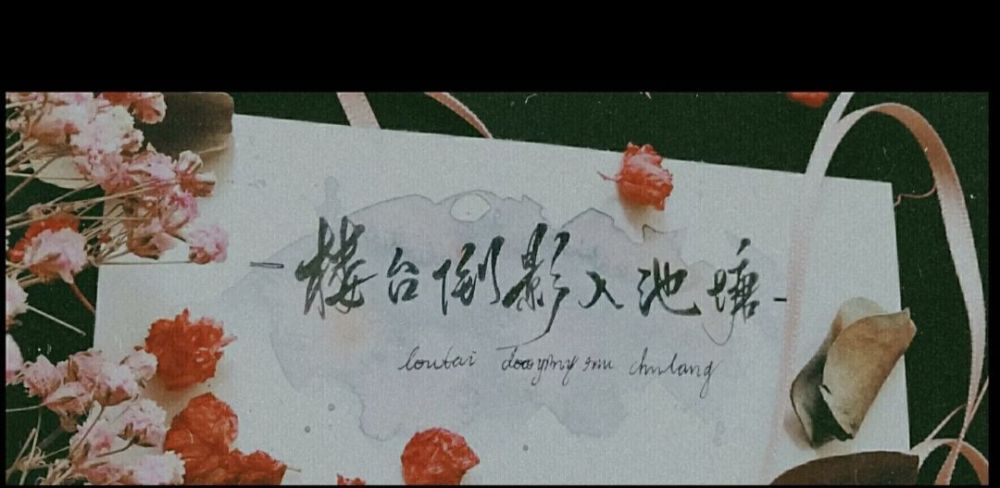 -楼台倒影入池塘-
loutai daoying ru chitang